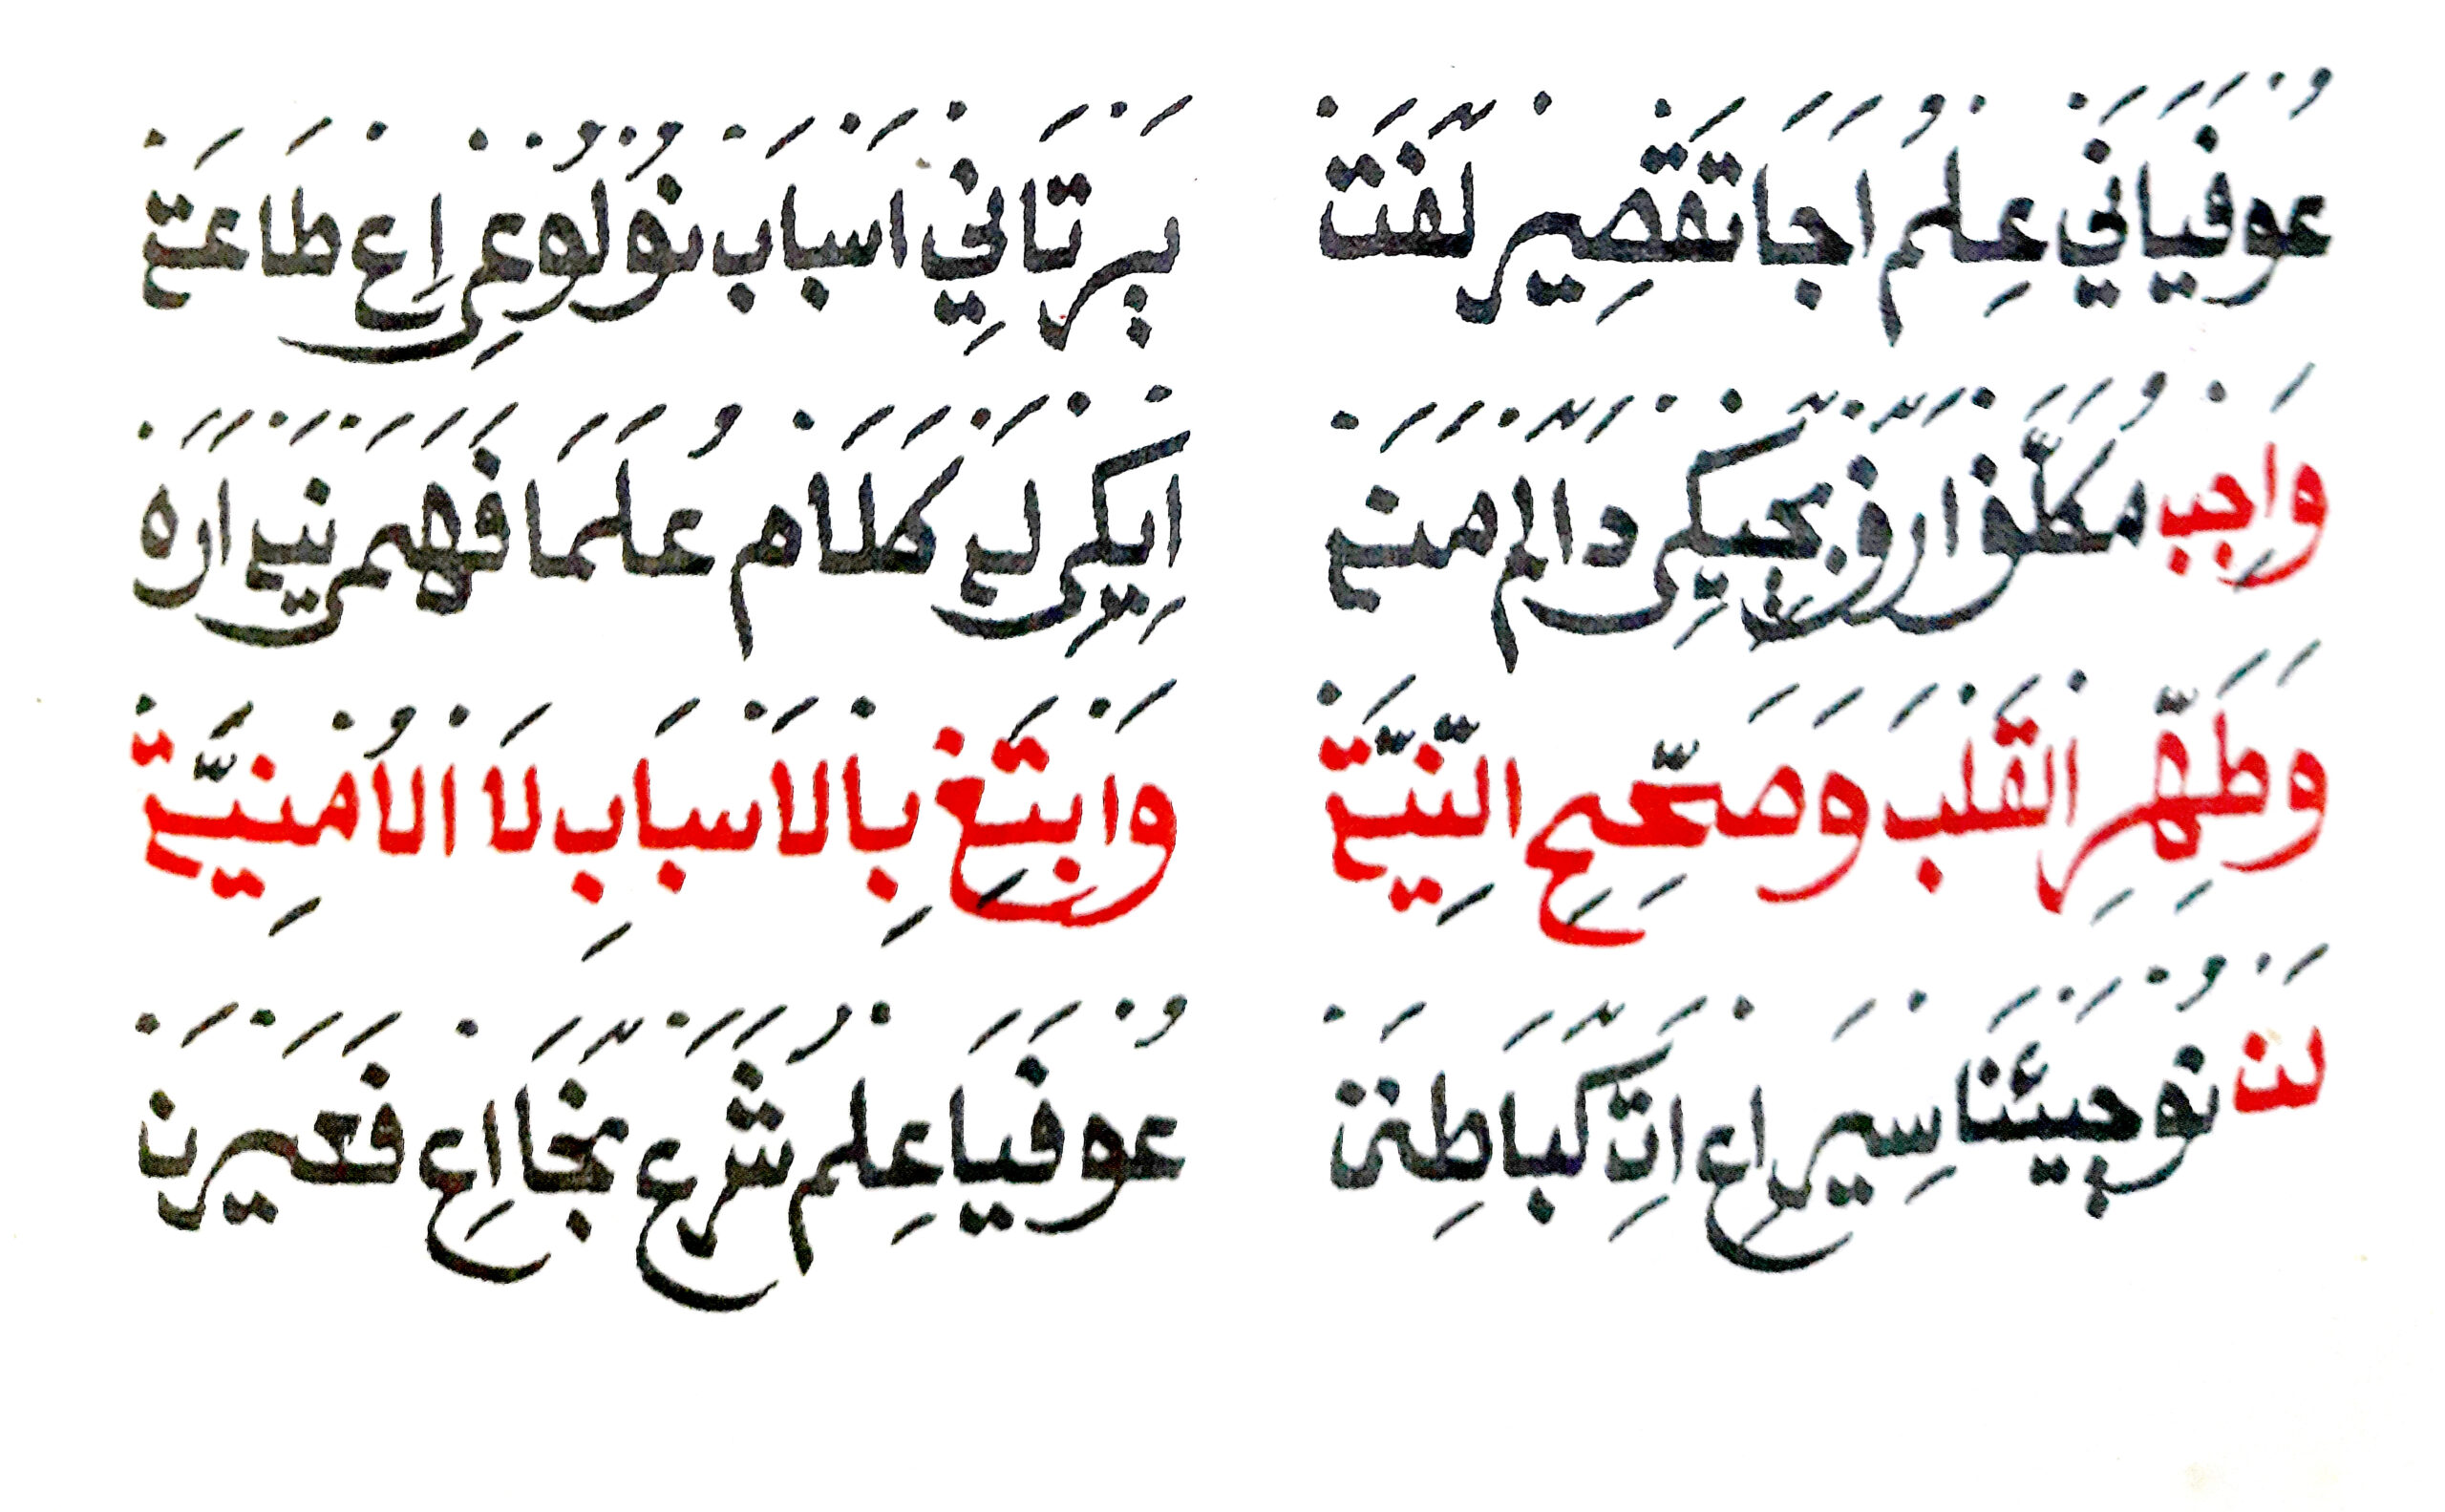 عُوْفَيَانَيْ عِلْمُ اَجَا تَقْصِيْر لّفَتْ بَرْتَانِيْ اَسْبَابْ نُوْلُوْعِيْ اِعْ طَاعَةْ
وَاجِبْ دَالَم اِيْكِيْ كَلَامْ عُلَمَا فَهَمَيْ
وَطَهِّرِ الْقَلْبَ وَصَحِّحِ النِّيَّةْ وَابْتَغِ بِالْاَسْبَابِ لَا الْاُمْنِيَّةْ
لَنْ نُوْجِيْئَنَا سِيْرَاعْ كَبَاطِنَنْ عُوْفَيَا عِلْمُ شَرَعْ اِعْ فَعَيْرَنْ